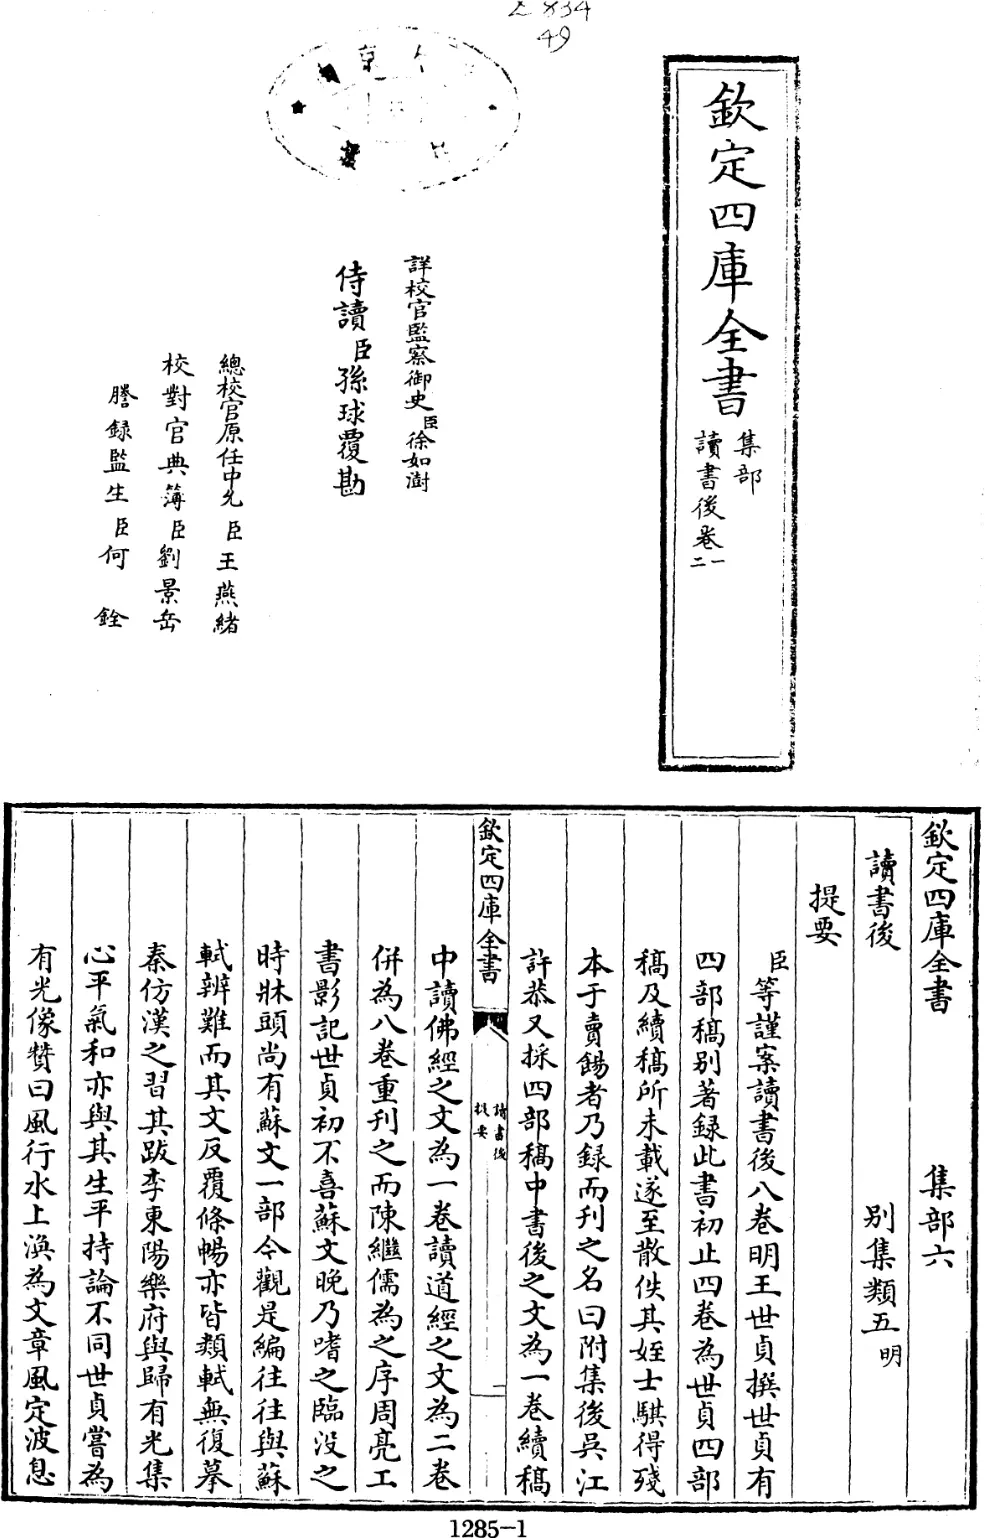 欽定四庫全書
集部
讀書後卷一
二
詳校官監察御史臣徐如澍
侍讀臣孫球覆勘
總校官原任中允臣王燕緒
校對官典簿臣劉景岳
謄錄監生臣何銓
49
欽定四庫全書 集部六
讀書後 别集類五明
提要
臣等謹案讀書後八卷明王世貞撰世貞有
四部稿别著録此書初止四卷為世貞四部
稿及續稿所未載遂至散佚其姪士騏得殘
本于賣餳者乃録而刊之名曰附集後吳江
許恭又採四部稿中書後之文為一卷續稿
欽定四庫全書
讀書後
提要
一
中讀佛經之文為一卷讀道經之文為二卷
併為八卷重刊之而陳繼儒為之序周亮工
書影記世貞初不喜蘇文晚乃嗜之臨没之
時牀頭尚有蘇文一部今觀是編往往與蘇
軾辨難而其文反覆條暢亦皆類軾無復摹
秦仿漢之習其跋李東陽樂府與歸有光集
心平氣和亦與其生平持論不同世貞嘗為
有光像贊曰風行水上渙為文章風定波息
1285-1